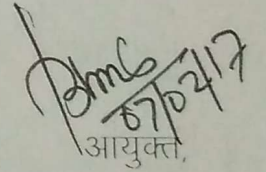 07/02/17
आयुक्त,